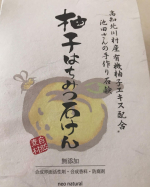 高知北川村産有機柚子エキス配合。
池田さんの手作り石鹸
柚子はちみつ石けん
無添加
合成界面活性剤・合成香料・防腐剤
neo natural